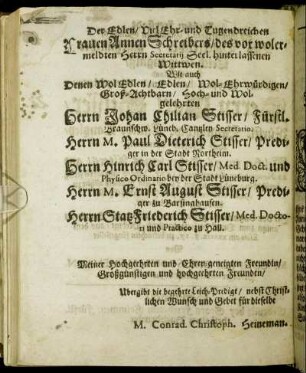 Der Edlen/ Viel Ehr- und Tugendreichen
Frauen Annen Schreibers/ des vor wolermeldten
Herrn Secretarij Seel. hinterlassenen
Wittwen.
Wie auch
Denen Wol Edlen/ Edlen/ Wol-Ehrwürdigen/
Groß-Achtbarn/ Hoch- und Wolgelehrten
Herrn Johan Chilian Stisser/ Fürstl.
Braunschw. Lüneb. Cantzley Secretario.
Herrn M. Paul Dieterich Stisser/ Prediger
in der Stadt Northeim.
Herrn Hinrich Carl Stisser/ Med. Doct. und
Physico Ordinario bey der Stadt Lüneburg.
Herrn M. Ernst August Stisser/ Prediger
zu Barsinghausen.
Herrn Statz Friederich Stisser/ Med. Doctori
und Practico zu Hall.
Meiner Hochgeehrten und Ehren-geneigten Freundin/
Großgünstigen und hochgeehrten Freunden/
Übergibt die begehrte Leich-Predigt/ nebst Christlichen
Wunsch und Gebet für dieselbe
M. Conrad. Christoph. Heineman.